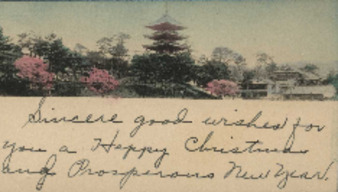 Sincere good wishes for
you a Happy Christmas
and Prosperous New Year.